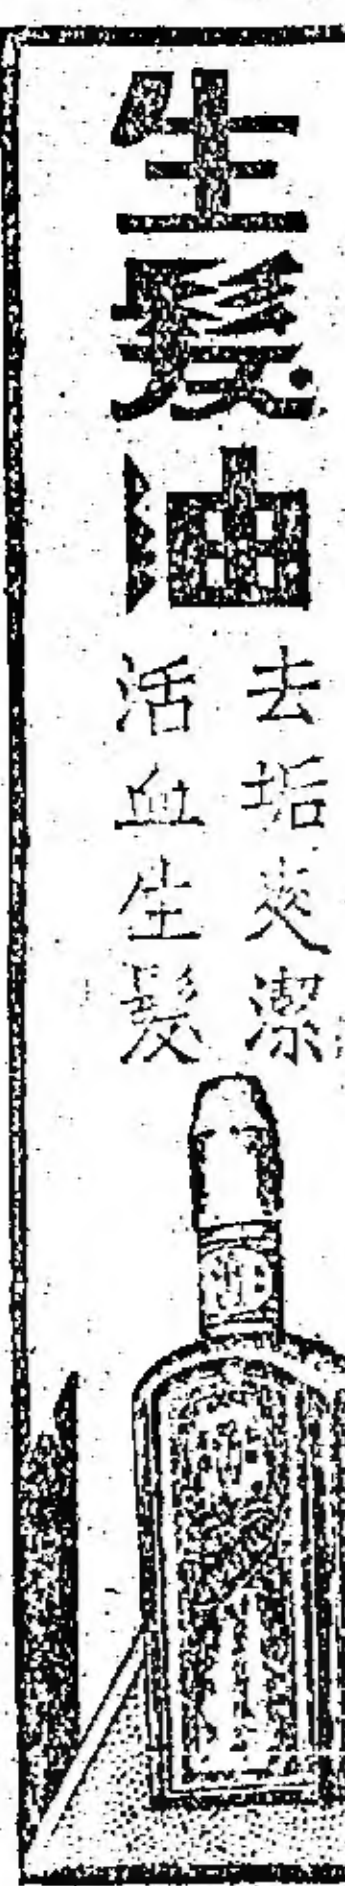 生髮油
去垢爽潔
活血生髮